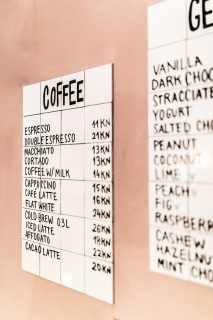 COFFEE
ESPRESSO 11 KN
DOUBLE ESPRESSO 21 KN
MACCHIATO 13 KN
CORTADO 13 KN
COFFEE W/ MILK 14 KN
CAPPUCCINO 15 KN
CAFÈ LATTE 16 KN
FLAT WHITE 24 KN
COLD BREW 0.3L
ICED LATTE
AFFOGATO 22 KN
CACAO LATTE 20 KN
GE
VANILLA
DARK CHOC
STRACCIATE
YOGURT
SALTED CHO
PEANUT
COCONUT
LIME V
PEACH V
FIG V
RASPBERR
CASHEW
HAZELNU
MINT CHO